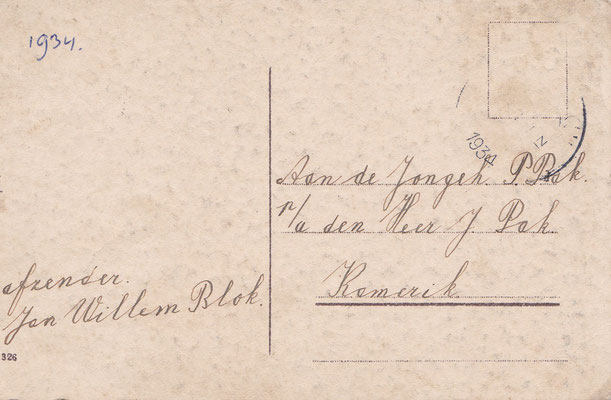 1934.
afzender.
Jan Willem Blok.
326
1934
Aan de Jongeh. P. Pak.
p/a den Heer J Pak.
Kamerik